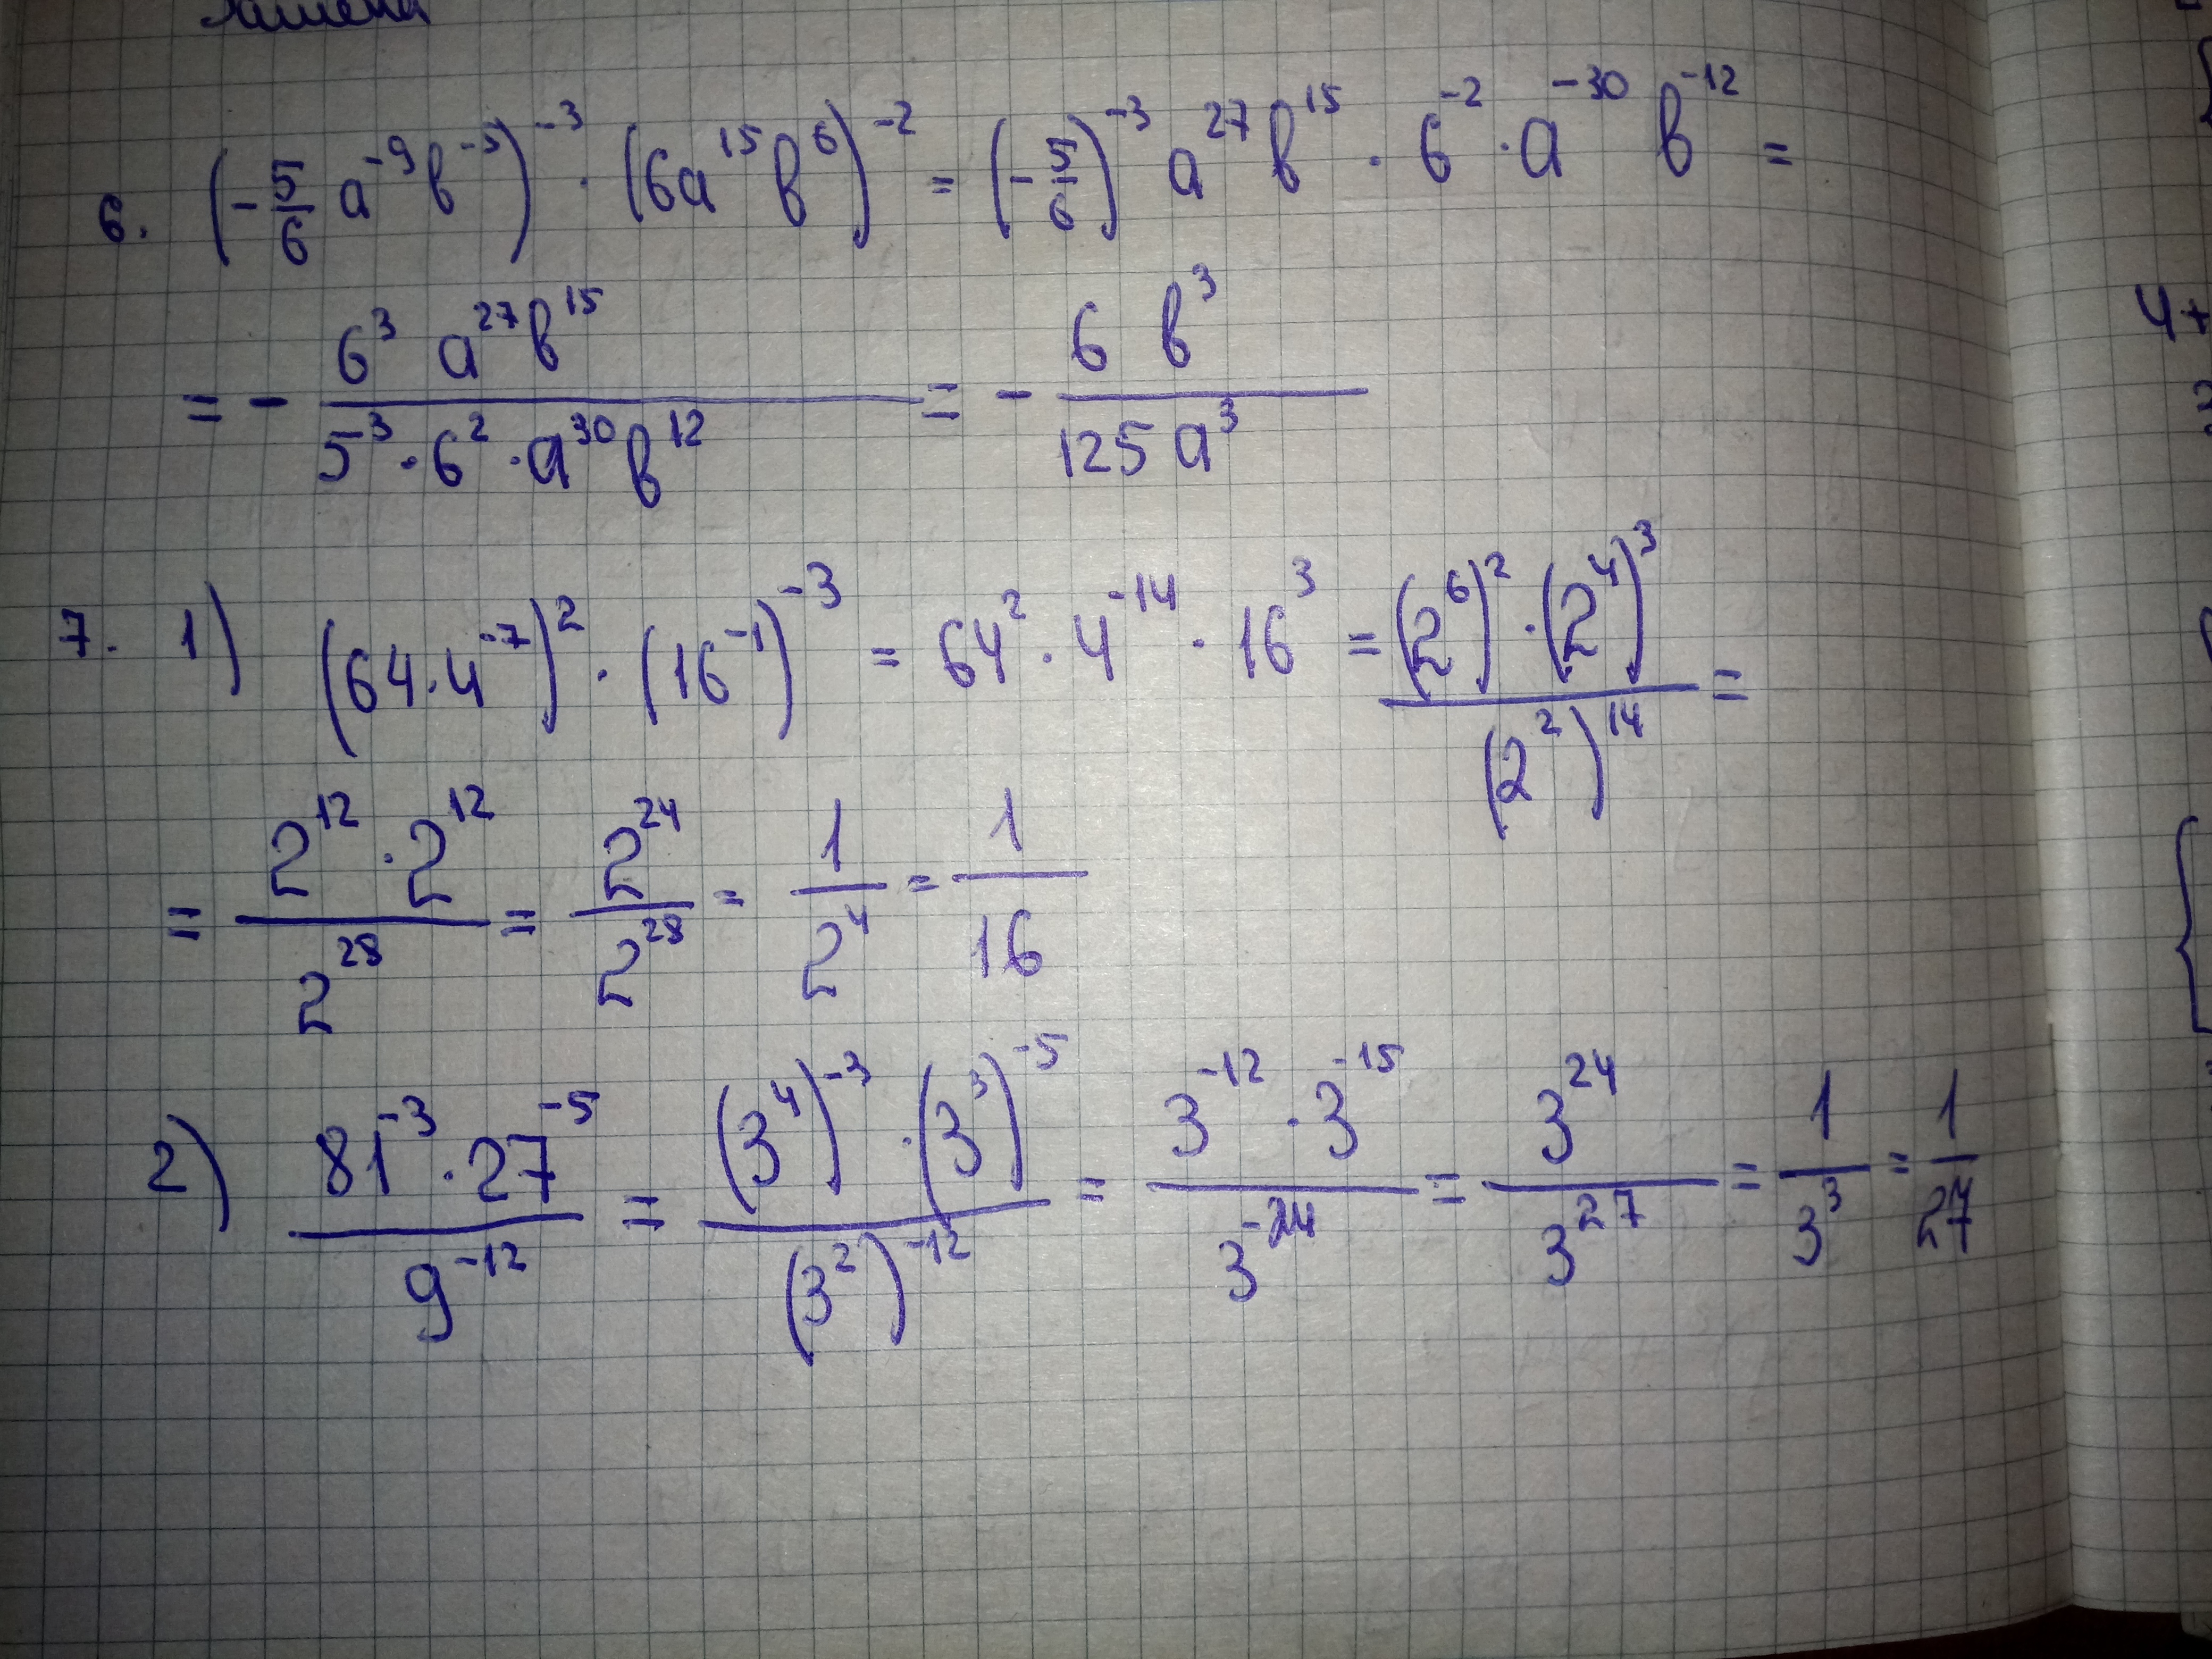 6. (-5/6 a⁻⁹b⁻⁵)⁻³ · (6a¹⁵b⁶)⁻² = (-5/6)⁻³ a²⁷b¹⁵ · 6⁻² · a⁻³⁰ b⁻¹² =
= - (6³ a²⁷b¹⁵)/(5³ · 6² · a³⁰b¹²) = - (6 b³)/(125 a³)
7. 1) (64·4⁻⁷)² · (16⁻¹)⁻³ = 64² · 4⁻¹⁴ · 16³ = ((2⁶)² · (2⁴)³)/((2²)¹⁴) =
= (2¹² · 2¹²)/2²⁸ = 2²⁴/2²⁸ = 1/2⁴ = 1/16
2) (81⁻³ · 27⁻⁵)/9⁻¹² = ((3⁴)⁻³ · (3³)⁻⁵)/((3²)⁻¹²) = (3⁻¹² · 3⁻¹⁵)/3⁻²⁴ = 3²⁴/3²⁷ = 1/3³ = 1/27
4+